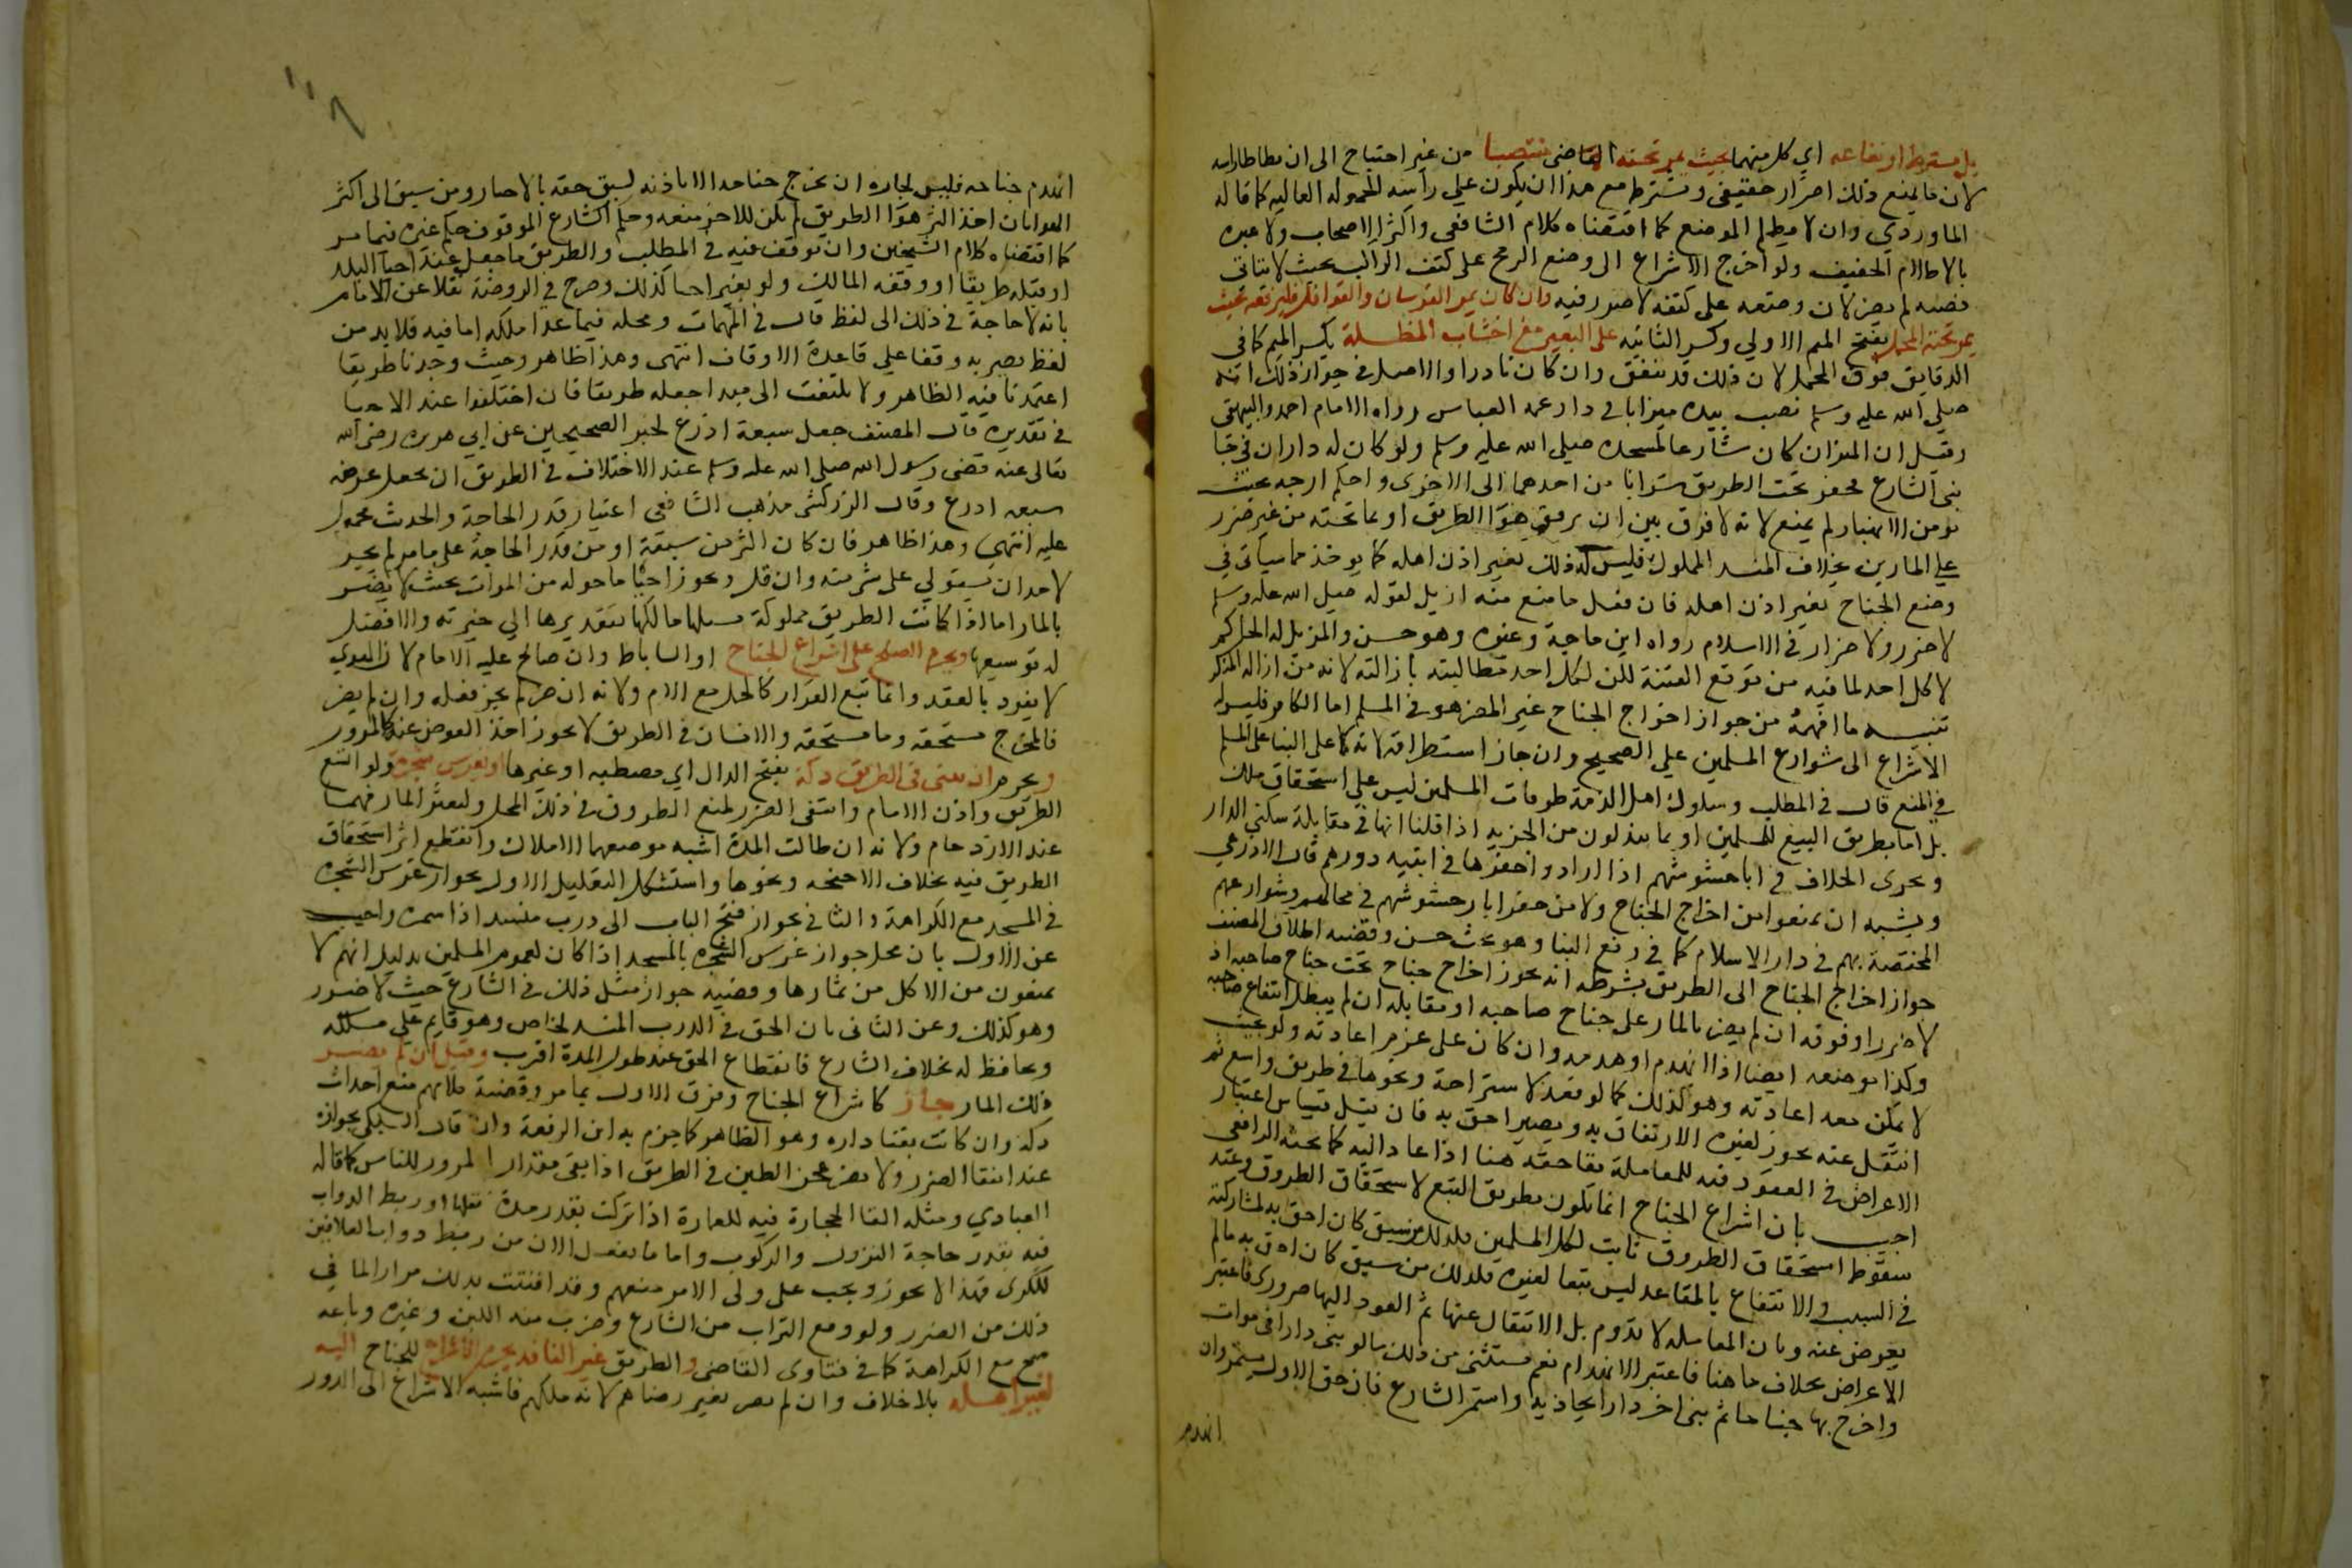 بل يشترط ارتفاعه اي كل منهما بحيث يمر تحته الماضي منتصبا من غير احتياج الى ان يطاطا راسه
لان ما يمنع ذلك اضرار حقيقي ويشترط مع هذا ان يكون على راسه الحمولة العالية كما قاله
الماوردي وان لا يظلم الموضع كما اقتضاه كلام الشافعي واكثر الاصحاب ولا عبره
بالاظلام الخفيف ولو اخرج الاشراع الى وضع الرمح على كتف الراكب بحيث لا يتاتى
نصبه لم يضر لان وضعه على كتفه لا ضرر فيه وان كان يمر الفرسان والقوافل فليرفعه بحيث
يمر تحته المحمل بفتح الميم الاولى وكسر الثانيه على البعير مع اخشاب المظلة بكسر الميم كما في
الدقايق فوق المحمل لان ذلك قد يتفق وان كان نادرا والاصل في جواز ذلك انه
صلى الله عليه وسلم نصب بيده ميزابا في دار عمه العباس رواه الامام احمد والبيهقي
وقيل ان الميزاب كان شارعا لمسجده صلى الله عليه وسلم ولو كان له داران في جا
نبي الشارع فحفر تحت الطريق سردابا من احدهما الى الاخرى واحكم ازجه بحيث
يومن الانهيار لم يمنع لانه لا فرق بين ان يرتفق بهوا الطريق او بما تحته من غير ضرر
على المارين بخلاف المنسد المملوك فليس له ذلك بغير اذن اهله كما يوخذ مما سياتي في
وضع الجناح بغير اذن اهله فان فعل ما منع منه ازيل لقوله صلى الله عليه وسلم
لا ضرر ولا ضرار في الاسلام رواه ابن ماجة وغيره وهو حسن والمزيل له الحاكم
لا كل احد لما فيه من توقع الفتنة لكن لكل احد مطالبته بازالته لانه من ازالة المنكر
تنبيه ما افهمه من جواز اخراج الجناح غير المضر هو في المسلم اما الكافر فليس له
الاشراع الى شوارع المسلمين على الصحيح وان جاز استطراقه لانه كاعلى البنا على المسلم
في المنع قال في المطلب وسلوك اهل الذمة طرقات المسلمين ليس على استحقاق ملك
بل اما بطريق التبع للمسلمين او بما يبذلون من الجزية اذا قلنا انها في مقابلة سكنى الدار
ويجرى الخلاف في ابار حشوشهم اذا ارادوا حفرها في افنية دورهم قال الاذرعي
ويشبه ان يمنعوا من اخراج الجناح ولا من حفر ابار حشوشهم في محالهم وشوارعهم
المختصة بهم في دار الاسلام كما في رفع البنا وهو بحث حسن وقضيه اطلاق المصنف
جواز اخراج الجناح الى الطريق بشرطه انه يجوز اخراج جناح تحت جناح صاحبه اذ
لا ضرر او فوقه ان لم يضر بالمار على جناح صاحبه او مقابله ان لم يبطل انتفاع صاحبه
وكذا موضعه ايضا اذا انهدم او هدمه وان كان على عزم اعادته ولو بحيث
لا يمكن معه اعادته وهو كذلك كما لو قعد لاستراحة ونحوها في طريق واسع ثم
انتقل عنه يجوز لغيره الارتفاق به ويصير احق به فان قيل قياس اعتبار
الاعراض في القعود فيه للمعاملة بقا حقه هنا اذا عاد اليه كما بحثه الرافعي
اجيب بان اشراع الجناح انما يكون بطريق التبع لاستحقاق الطروق وعند
سقوط استحقاق الطروق ثابت لكل المسلمين فلذلك من سبق كان احق به لمشاركته
في السبب والانتفاع بالمقاعد ليس تبعا لغيره فلذلك من سبق كان احق به ما لم
يعرض عنه وبان المعاملة لا تدوم بل الانتقال عنها ثم العود اليها ضروري فاعتبر
الاعراض بخلاف ما هنا فاعتبر الانهدام نعم يستثنى من ذلك ما لو بنى دارا في موات
واخرج بها جناحا ثم بنى اخر دارا تحاذيه واستمر الشارع فان حق الاول يستمر وان
انهدم
انهدم جناحه فليس لجاره ان يخرج جناحه الا باذنه لسبق حقه بالاحيا ومن سبق الى اكثر
الهوا بان اخذ اكثر هوا الطريق لم يكن للاخر منعه وحكم الشارع الموقوف حكم غيره فيما مر
كما اقتضاه كلام الشيخين وان توقف فيه في المطلب والطريق ما جعل عند احيا البلد
او قبله طريقا او وقفه المالك ولو بغير احيا كذلك وصرح في الروضة نقلا عن الامام
بانه لا حاجة في ذلك الى لفظ قال في المهمات ومحله فيما عدا ملكه اما فيه فلا بد من
لفظ يصير به وقفا على قاعدة الاوقاف انتهى وهذا ظاهر وحيث وجدنا طريقا
اعتمدنا فيه الظاهر ولا يلتفت الى مبدا جعله طريقا فان اختلفوا عند الاحيا
في تقديره قال المصنف جعل سبعة اذرع لخبر الصحيحين عن ابي هريره رضي الله
تعالى عنه قضى رسول الله صلى الله عليه وسلم عند الاختلاف في الطريق ان يجعل عرضه
سبعه اذرع وقال الزركشى مذهب الشافعي اعتبار قدر الحاجة والحديث محمول
عليه انتهى وهذا ظاهر فان كان اكثر من سبعة او من قدر الحاجة على ما مر لم يجز
لاحد ان يستولي على شي منه وان قل ويجوز احيا ما حوله من الموات بحيث لا يضر
بالمار اما اذا كانت الطريق مملوكة يسبلها مالكها فتقديرها الى خيرته والافضل
له توسيعها ويحرم الصلح على اشراع الجناح او الساباط وان صالح عليه الامام لان الهوى
لا يفرد بالعقد وانما يتبع القرار كالحمل مع الام ولانه ان ضر لم يجز فعله وان لم يضر
فالمخرج مستحقه وما يستحقه الانسان في الطريق لا يجوز اخذ العوض عنه كالمرور
ويحرم ان يبنى في الطريق دكة بفتح الدال اي مصطبه او غيرها او يغرس شجرة ولو اتسع
الطريق واذن الامام وانتفى الضرر لمنع الطروق في ذلك المحل ولتعثر المار فيهما
عند الازدحام ولانه ان طالت المدة اشبه موضعهما الاملاك وانقطع اثر استحقاق
الطريق فيه بخلاف الاجنحه ونحوها واستشكل التعليل الاول بجواز غرس الشجره
في المسجد مع الكراهة والثاني بجواز فتح الباب الى درب منسد اذا سمره واجيب
عن الاول بان محل جواز غرس الشجره بالمسجد اذا كان لعموم المسلمين بدليل انهم لا
يمنعون من الاكل من ثمارها وقضيته جواز مثل ذلك في الشارع حيث لا ضرر
وهو كذلك وعن الثاني بان الحق في الدرب المنسد لخاص وهو قايم على ملكه
ويحافظ له بخلاف الشارع فانقطاع الحق عند طول المدة اقرب وقيل ان لم يضر
ذلك المار جاز كاشراع الجناح وفرق الاول بما مر وقضية كلامهم منع احداث
دكه وان كانت بفنا داره وهو الظاهر كما جزم به ابن الرفعة وان قال السبكي بجوازه
عند انتفا الضرر ولا يضر عجن الطين في الطريق اذا بقي مقدار المرور للناس كما قاله
العبادي ومثله القا الحجارة فيه للعمارة اذا تركت بقدر مدة نقلها او ربط الدواب
فيه بقدر حاجة النزول والركوب واما ما يفعل الان من ربط دواب العلافين
للكرى فهذا لا يجوز ويجب على ولى الامر منعهم وقد افتيت بذلك مرارا لما في
ذلك من الضرر ولو رفع التراب من الشارع وضرب منه اللبن وغيره وباعه
صح مع الكراهة كما في فتاوى القاضي والطريق غير النافذ يحرم الاشراع للجناح اليه
لغير اهله بلا خلاف وان لم يضر بغير رضاهم لانه ملكهم فاشبه الاشراع الى الدور